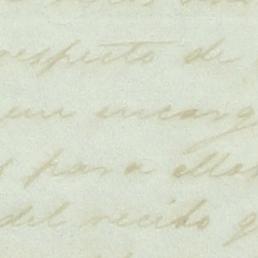 respecto de
encarg
para ellos
del recibo q